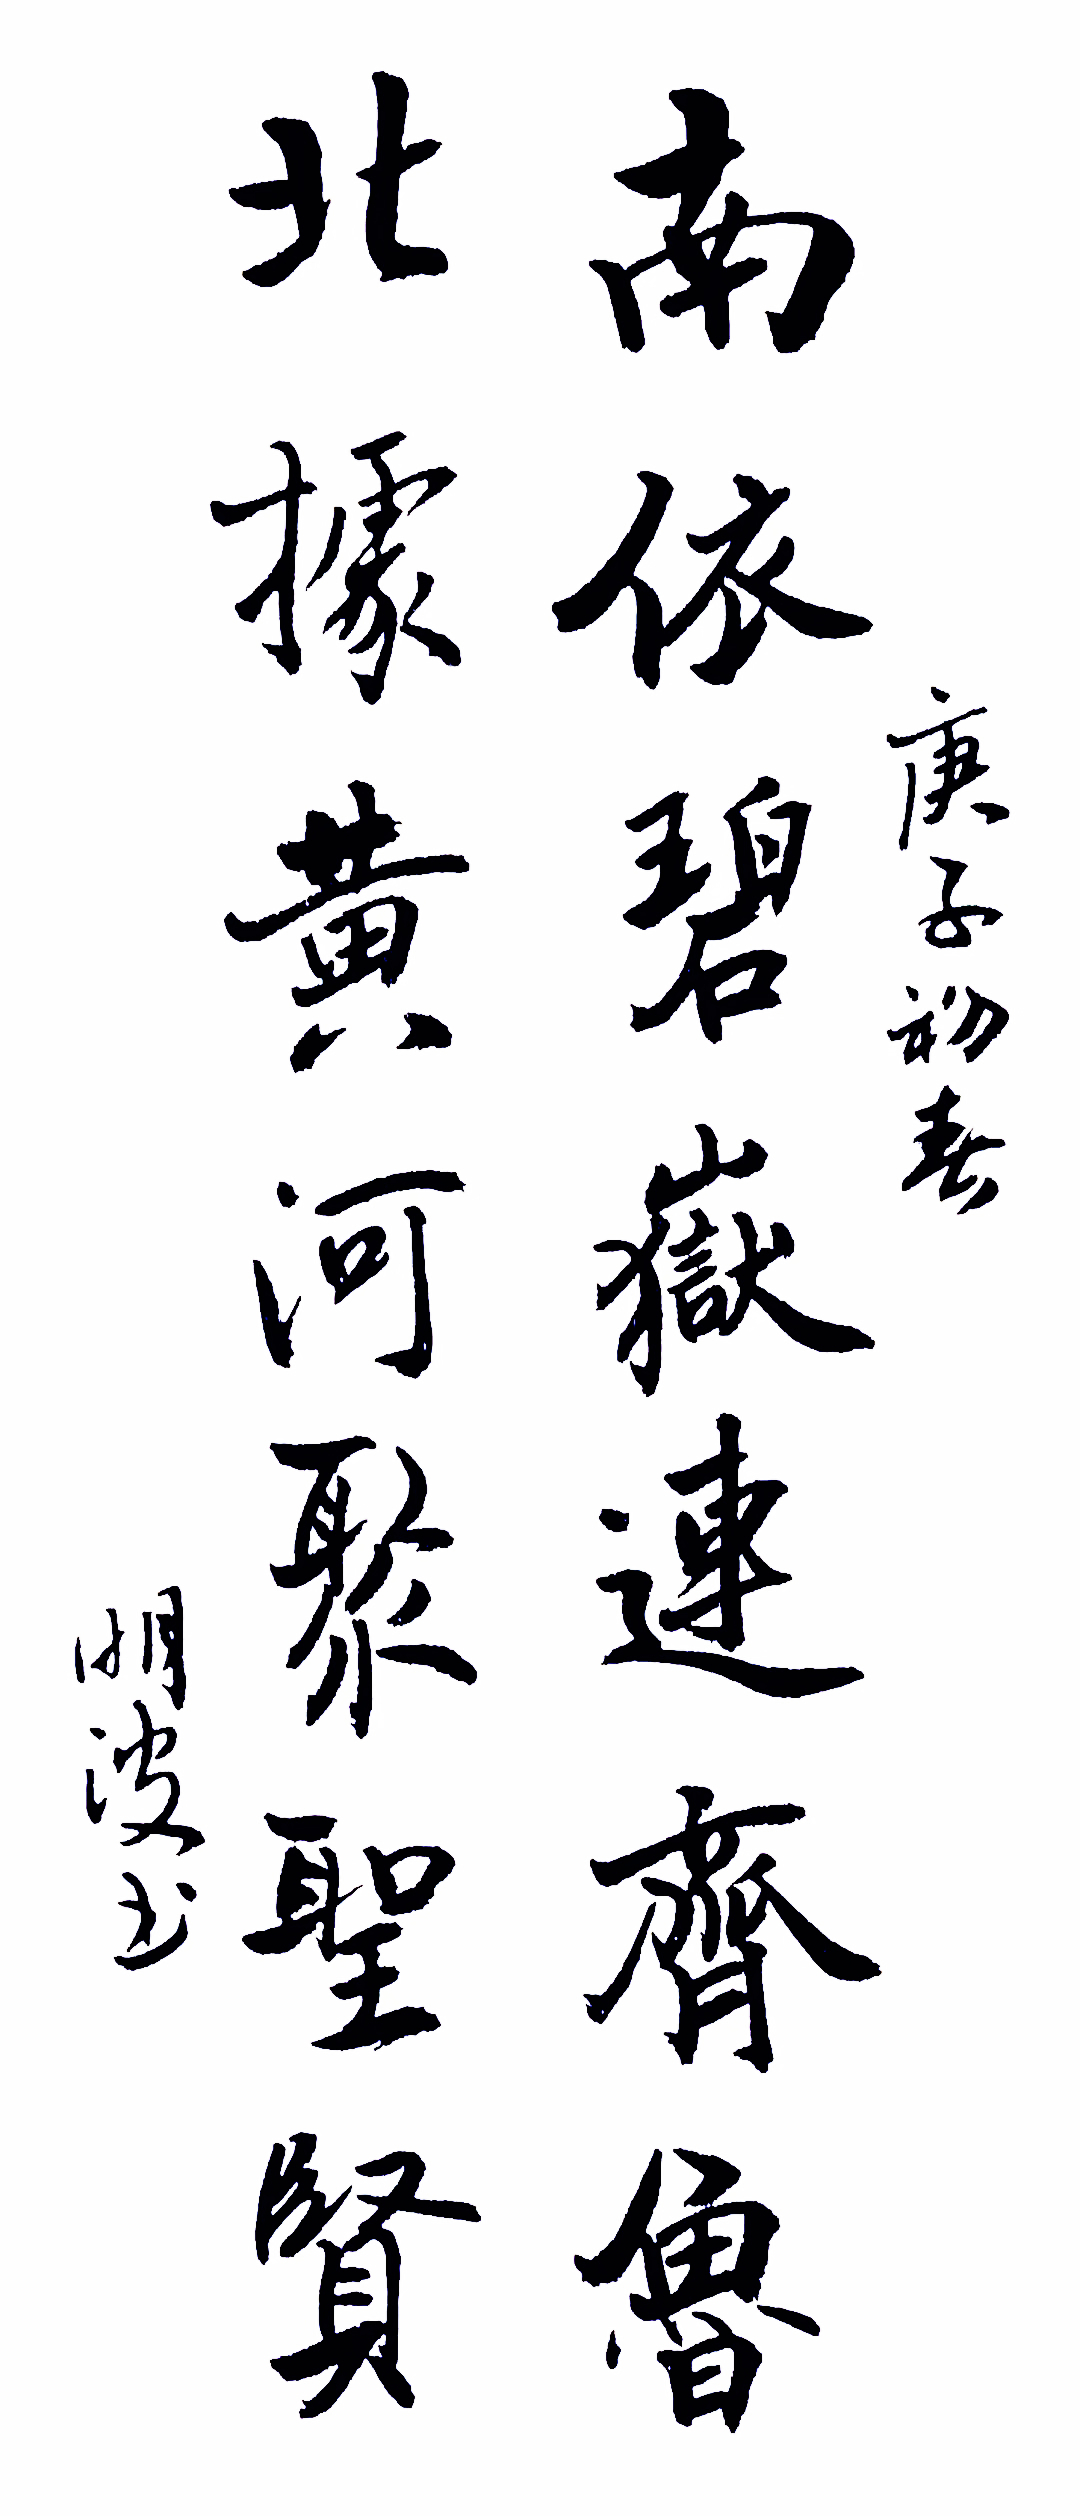 庚子初春
南依碧嶽連齊魯
北據黃河聚聖賢
明波书